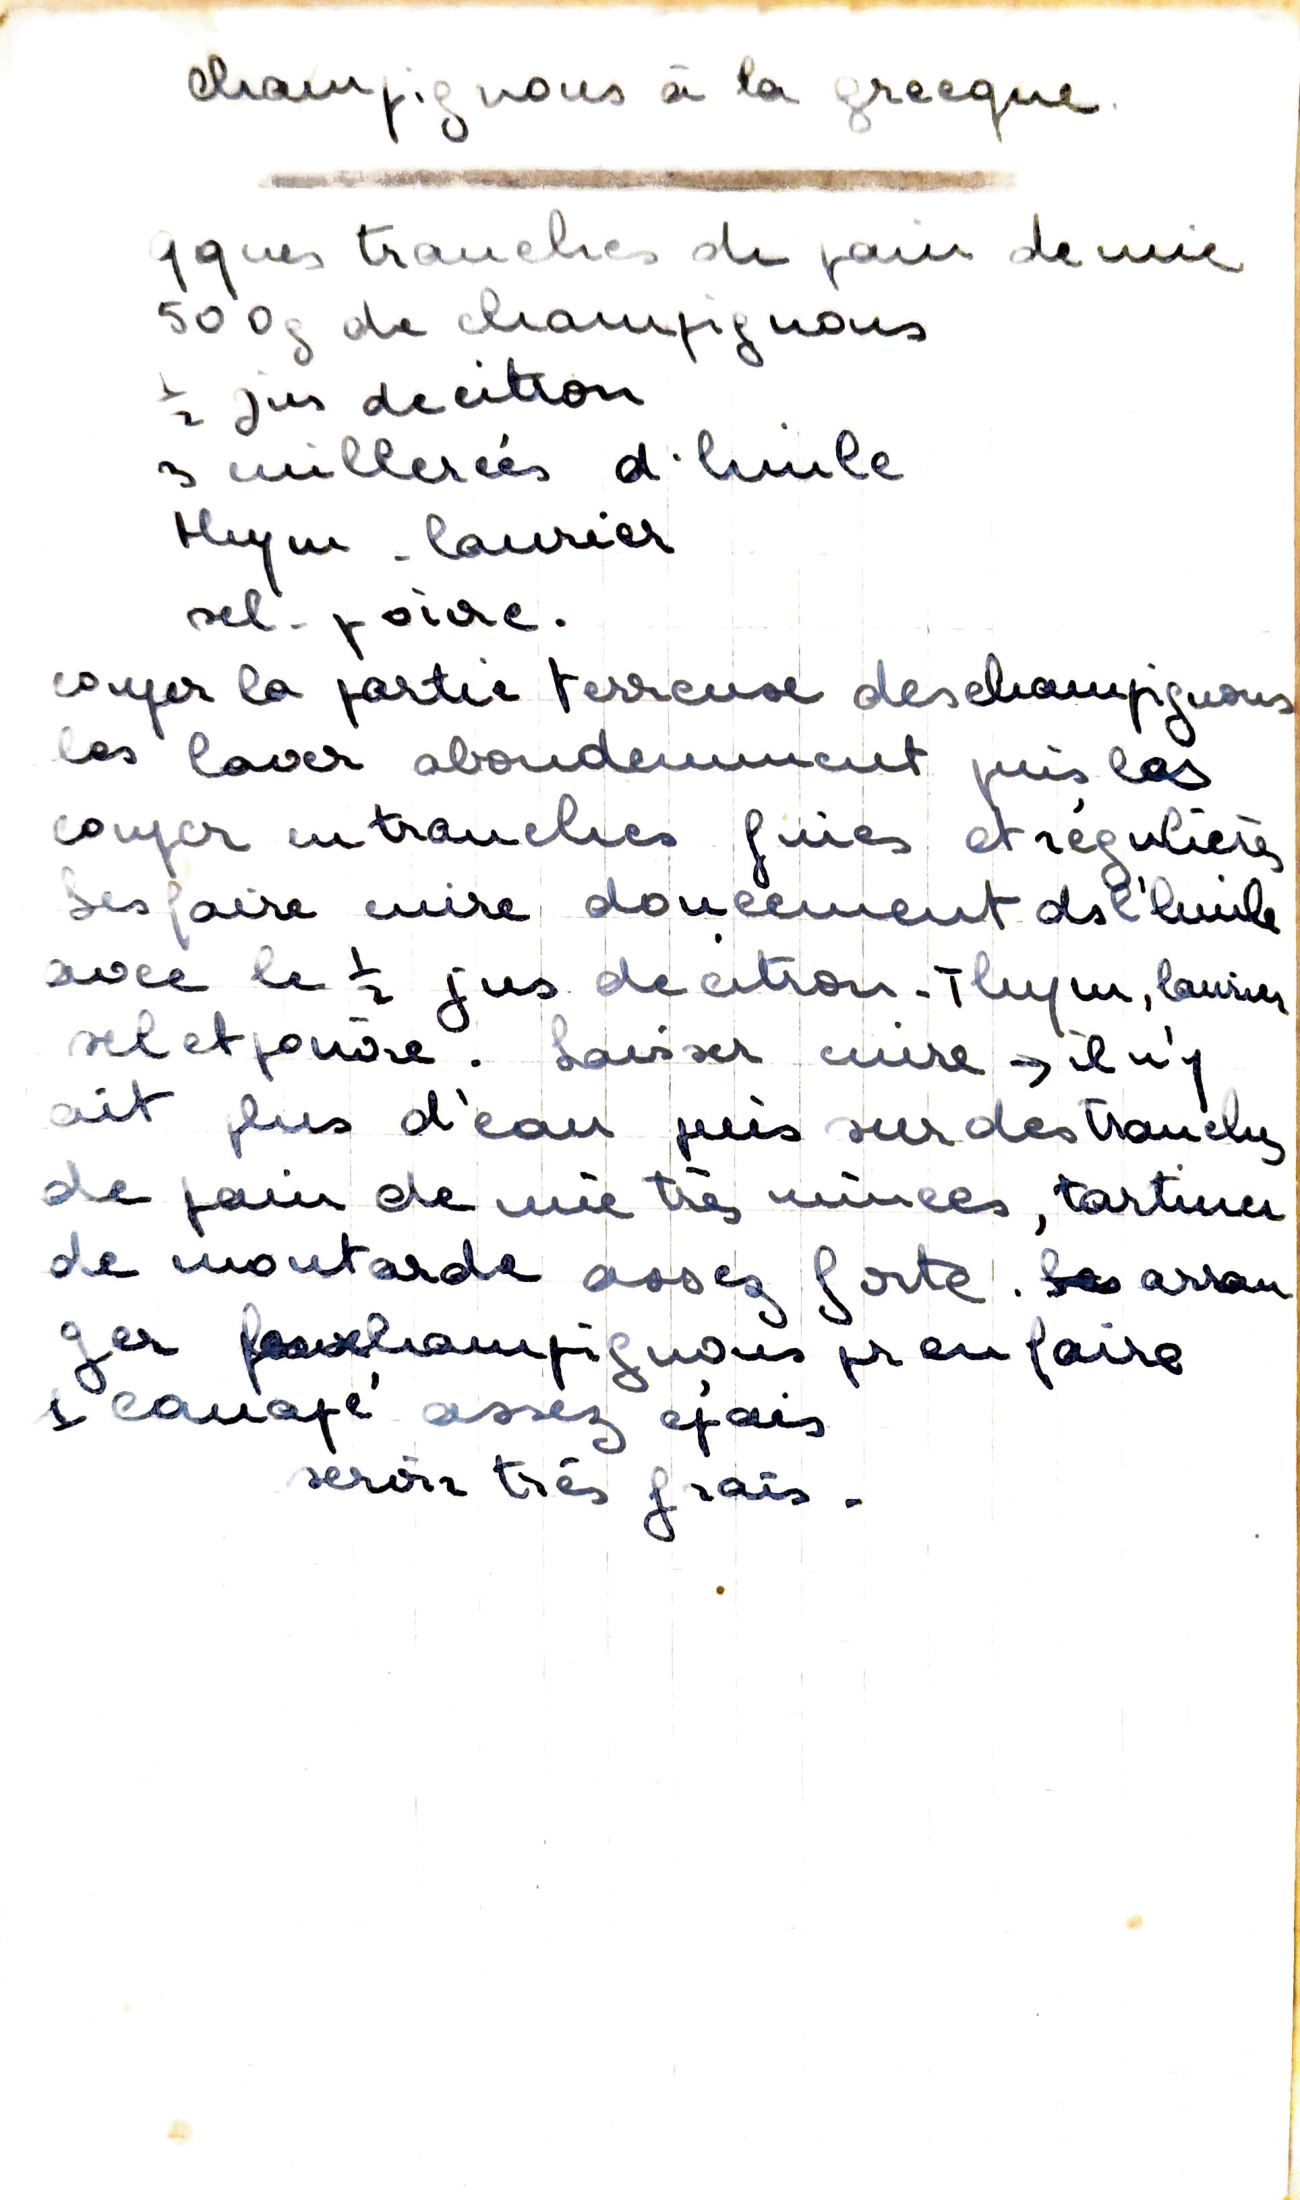 champignons à la grecque.
qques tranches de pain de mie
500g de champignons
1/2 jus de citron
3 cuillereés d'huile
thym - laurier
sel - poivre.
couper la partie terreuse des champignons
les laver abondemment puis les
couper en tranches fines et régulières
Les faire cuire doucement ds l'huile
avec le 1/2 jus de citron - Thym, laurier
sel et poivre. Laisser cuire → il n'y
ait plus d'eau puis sur des tranches
de pain de mie très minces, tartiner
de moutarde assez forte. arran
ger champignons pr en faire
1 canapé assez épais
servir très frais.